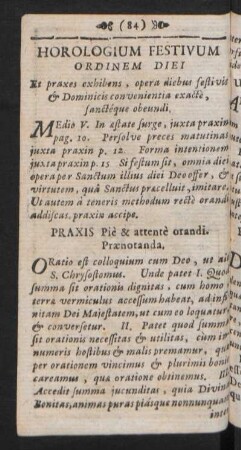 (84)
HOROLOGIUM FESTIVUM
ORDINEM DIEI
Et praxes exhibens, opera diebus festivis
& Dominicis convenientia exactè,
sanctéque obeundi.
MEdio V. In æstate surge, juxta praxim
pag. 10. Persolve preces matutinas
juxta praxin p. 12. Forma intentionem
juxta praxin p. 15 Si festum sit, omnia diei
opera per Sanctum illius diei Deo offer, &
virtutem, quâ Sanctus præcelluit, imitare.
Ut autem à teneris methodum rectè orandi
addiscas, praxin accipe.
PRAXIS Piè & attentè orandi.
Prænotanda.
ORatio est colloquium cum Deo, ut ait
S. Chrysostomus. Unde patet I. Quod
summa sit orationis dignitas, cum homo
terræ vermiculus accessum habeat, ad infi-
nitam Dei Majestatem, ut cum eo loquatur
& conversetur. II. Patet quod summa
sit orationis necessitas & utilitas, cum in-
numeris hostibus & malis premamur, quæ
per orationem vincimus & plurimis bonis
careamus, quæ oratione obtinemus. III.
Accedit summa jucunditas, quia Divina
Bonitas, animas puras piásque nonnunquam